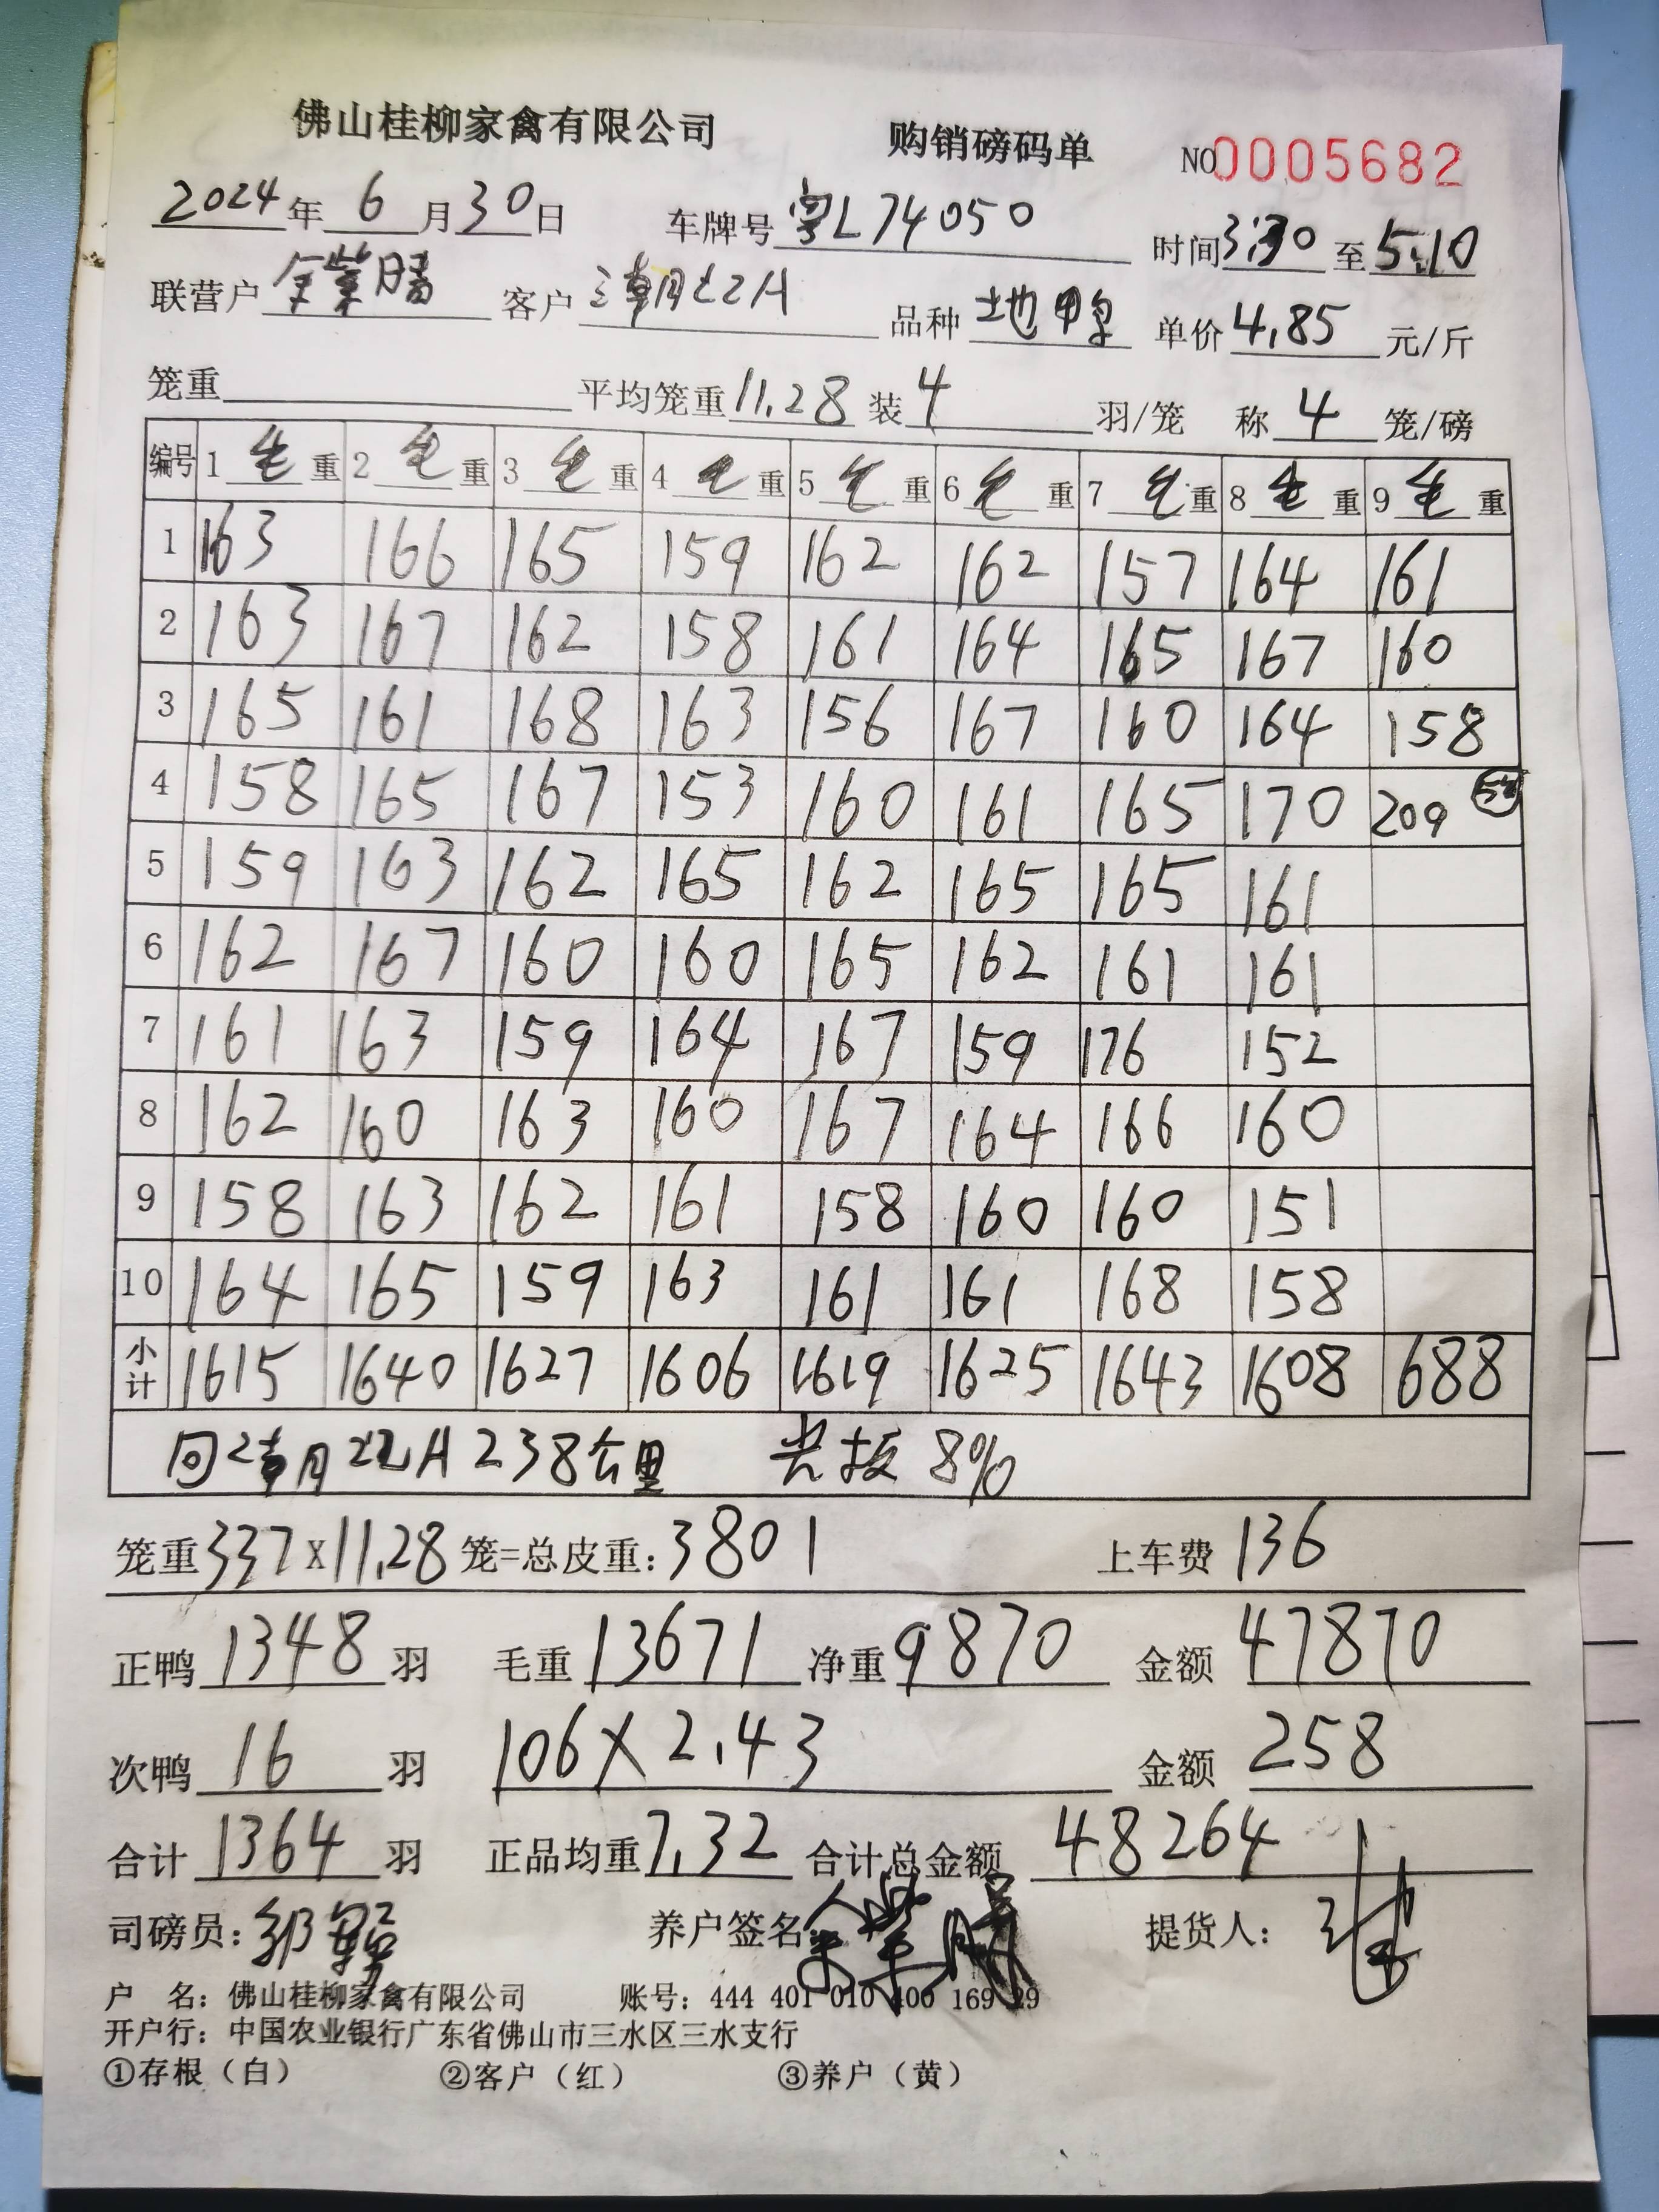 佛山桂柳家禽有限公司 购销磅码单 NO0005682
2024年 6 月 30 日 车牌号 粤L74050 时间 3:30 至 5:10
联营户 客户 品种 土也鸭 单价 4.85 元/斤
笼重 平均笼重 11.28 装 4 羽/笼 称 4 笼/磅
编号 1 毛 重 2 毛 重 3 毛 重 4 毛 重 5 毛 重 6 毛 重 7 毛 重 8 毛 重 9 毛 重
1 163 166 165 159 162 162 157 164 161
2 163 167 162 158 161 164 165 167 160
3 165 161 168 163 156 167 160 164 158
4 158 165 167 153 160 161 165 170 209
5 159 163 162 165 162 165 165 161
6 162 167 160 160 165 162 161 161
7 161 163 159 164 167 159 176 152
8 162 160 163 160 167 164 166 160
9 158 163 162 161 158 160 160 151
10 164 165 159 163 161 161 168 158
小计 1615 1640 1627 1606 1619 1625 1643 1608 688
回 238公里 8%
笼重 337 x 11.28 笼=总皮重: 3801 上车费 136
正鸭 1348 羽 毛重 13671 净重 9870 金额 47870
次鸭 16 羽 106 x 2.43 金额 258
合计 1364 羽 正品均重 7.32 合计总金额 48264
司磅员: 养户签名: 提货人:
户 名: 佛山桂柳家禽有限公司 账号: 444 401 010 400 169 29
开户行: 中国农业银行广东省佛山市三水区三水支行
①存根（白） ②客户（红） ③养户（黄）